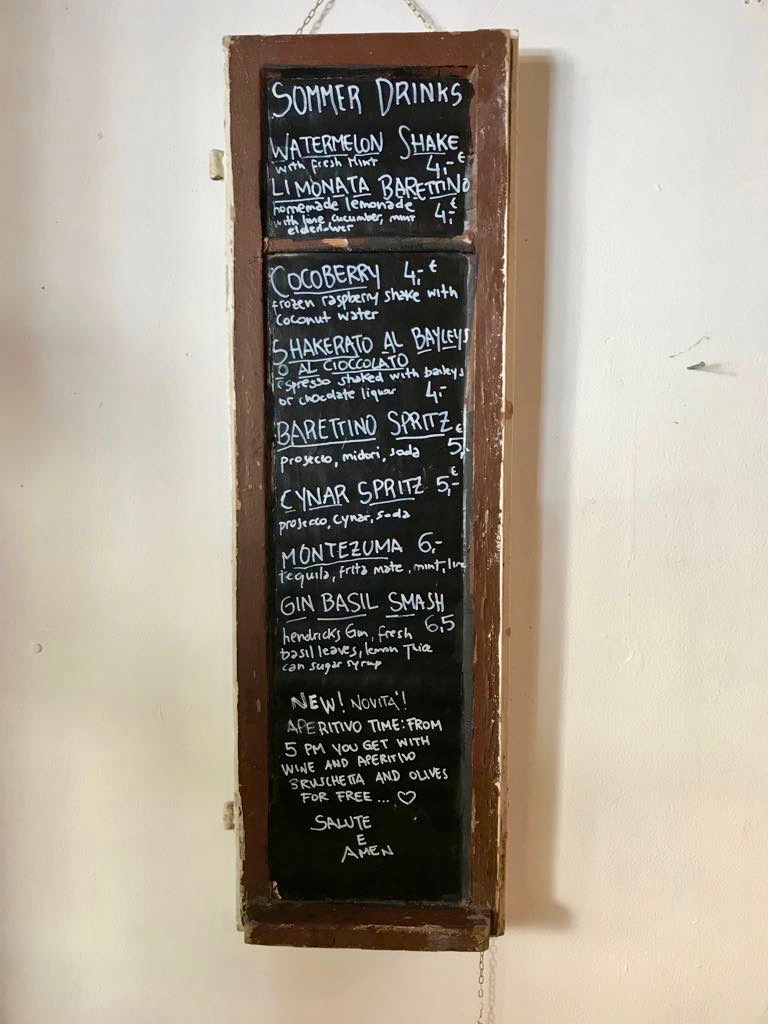 SOMMER DRINKS
WATERMELON SHAKE
with fresh Mint 4,- €
LIMONATA BARETTINO
homemade lemonade
with lime, cucumber, mint 4,- €
elderflower
COCOBERRY 4,- €
frozen raspberry shake with
coconut water
SHAKERATO AL BAYLEYS
O AL CIOCCOLATO
espresso shaked with baileys
or chocolate liquor 4,-
BARETTINO SPRITZ €
prosecco, midori, soda 5,
CYNAR SPRITZ 5,- €
prosecco, cynar, soda
MONTEZUMA 6,-
tequila, frita mate, mint, lime
GIN BASIL SMASH
6,5
hendricks Gin, fresh
basil leaves, lemon Juice
can sugar syrup
NEW! NOVITA'!
APERITIVO TIME: FROM
5 PM YOU GET WITH
WINE AND APERITIVO
BRUSCHETTA AND OLIVES
FOR FREE ... ♡
SALUTE
E
AMEN